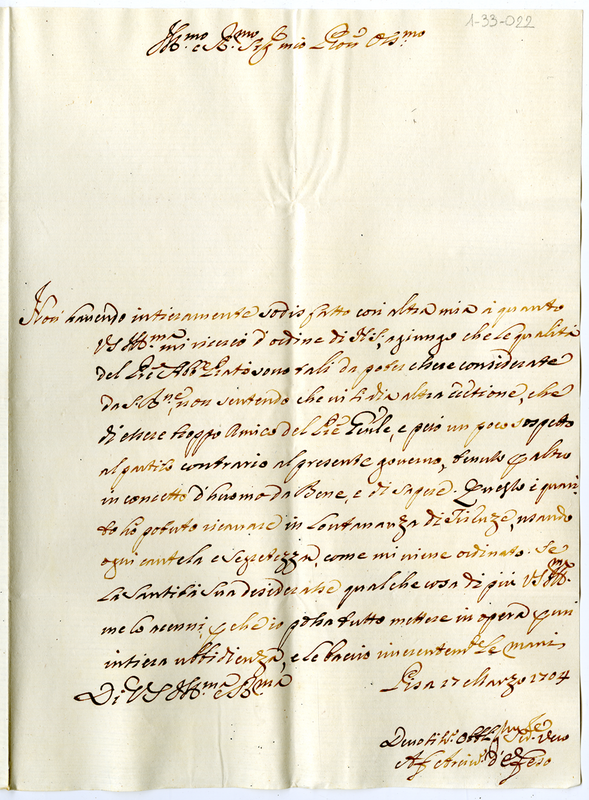 1-33-022
Ill.mo e R.mo Sig.r mio P'ron Oss.mo
Non havendo intieramente sodisfatto con altra mia à quanto
VS Ill.ma mi ricercò d'ordine di NS, agiungo che le qualità
del P're Ab.e Prato sono tali da poter essere considerate
da S. B.ne, non sentendo che vi si dia altra ecc'tione, che
di essere troppo Amico del P're Gn'le, e però un poco sospetto
al partito contrario al presente governo, tenuto p altro
in concetto d'huomo da Bene, e di sapere. Questo è quan
to hò potuto ricavare in lontananza di Firenze, usando
ogni cautela e segretezza, come mi viene ordinato. Se
La Santità Sua desiderasse qualche cosa di più VS Ill.ma
me lo acenni, p che io possa tutto mettere in opera p un'
intiera ubbidienza, e le bacio riverentem.te le mani
Di VS Ill.ma e R.ma Pisa 17 Marzo 1704
Devotis.o Obblig. Ser. vero
Af Arciv.o d'Efeso